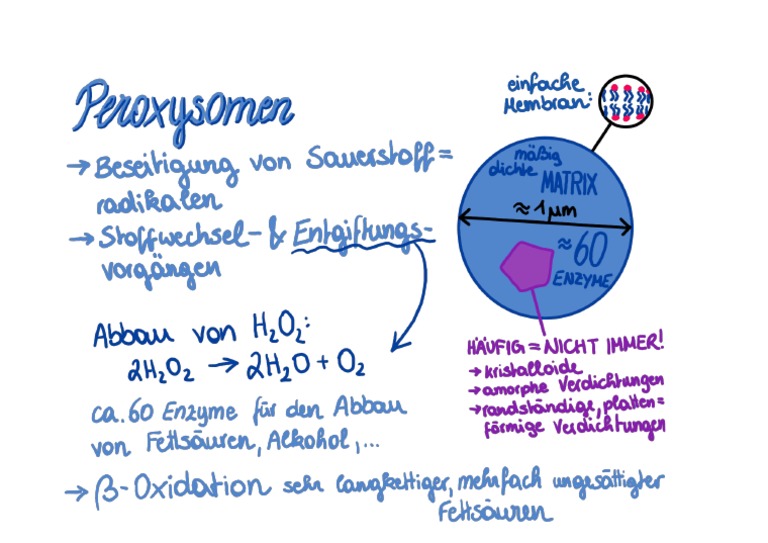 Peroxysomen
→ Beseitigung von Sauerstoff=
radikalen
→ Stoffwechsel- & Entgiftungs-
vorgängen
Abbau von H₂O₂:
2H₂O₂ → 2H₂O + O₂
ca. 60 Enzyme für den Abbau
von Fettsäuren, Alkohol,...
→ β-Oxidation sehr langkettiger, mehrfach ungesättigter
Fettsäuren
einfache
Membran:
mäßig
dichte MATRIX
≈ 1 µm
≈ 60
ENZYME
HÄUFIG = NICHT IMMER!
→ kristalloide
→ amorphe Verdichtungen
→ randständige, platten=
förmige Verdichtungen